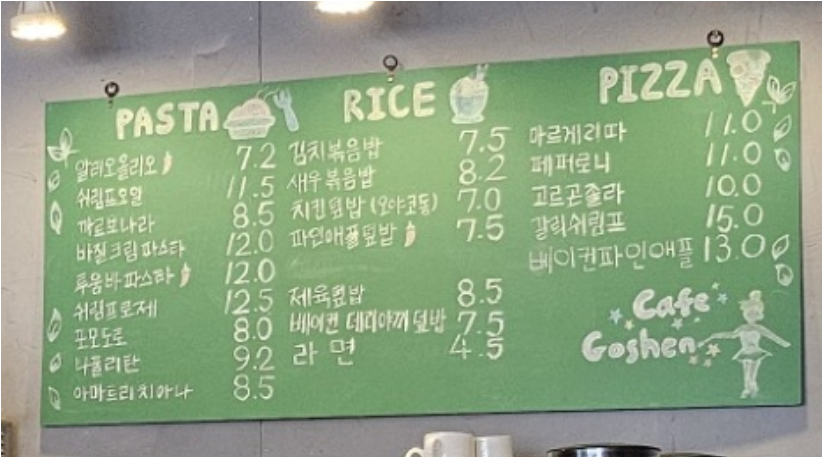 PASTA
알리오올리오 7.2
쉬림프오일 11.5
까르보나라 8.5
바질크림파스타 12.0
투움바파스타 12.0
쉬림프로제 12.5
포모도로 8.0
나폴리탄 9.2
아마트리치아나 8.5
RICE
김치볶음밥 7.5
새우볶음밥 8.2
치킨덮밥 (오야코동) 7.0
파인애플덮밥 7.5
제육덮밥 8.5
베이컨 데리야끼 덮밥 7.5
라면 4.5
PIZZA
마르게리따 11.0
페퍼로니 11.0
고르곤졸라 10.0
갈릭쉬림프 15.0
베이컨파인애플 13.0
Cafe
Goshen